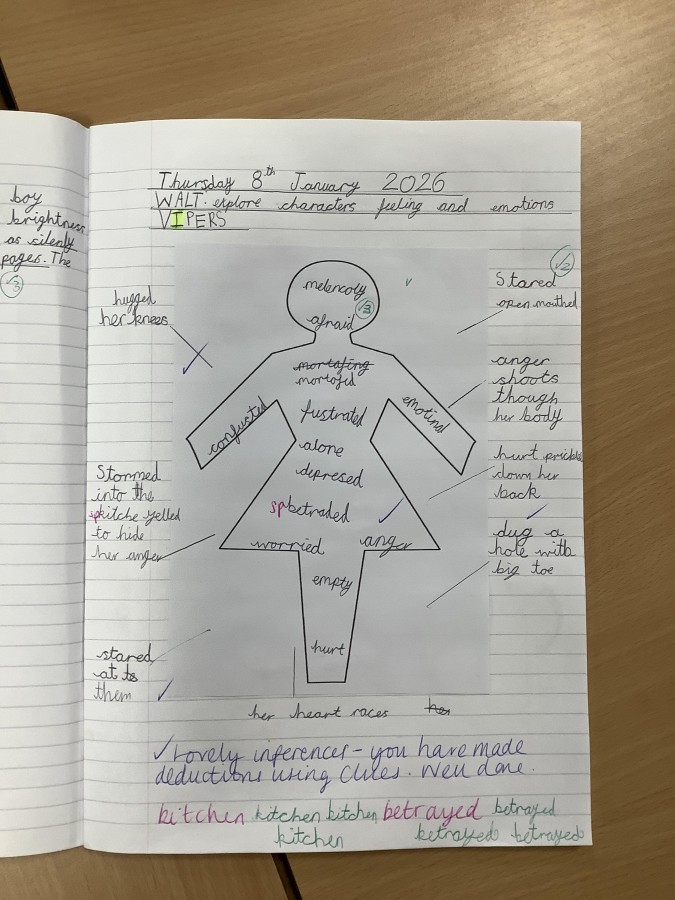 boy
brightness
as silenly
pages. The
√3
Thursday 8th January 2026
WALT. explore characters feeling and emotions
VIPERS
√2
hugged
her knees
Stared
open mouthed
melencoly
√3
afraid
mortafing
mortofid
anger
shoots
though
her body
confusted
fustrated
emotinal
alone
depresed
hurt prickls
down her
back
Stommed
into the
sp kitche yelled
to hide
her anger
sp betraded
dug a
hole with
big toe
worried anger
empty
stared
at ts
them
hurt
her heart races her
√ Lovely inferences - you have made
deductions using clues. Well done.
kitchen kitchen kitchen betrayed betrayed
kitchen betrayed betrayed